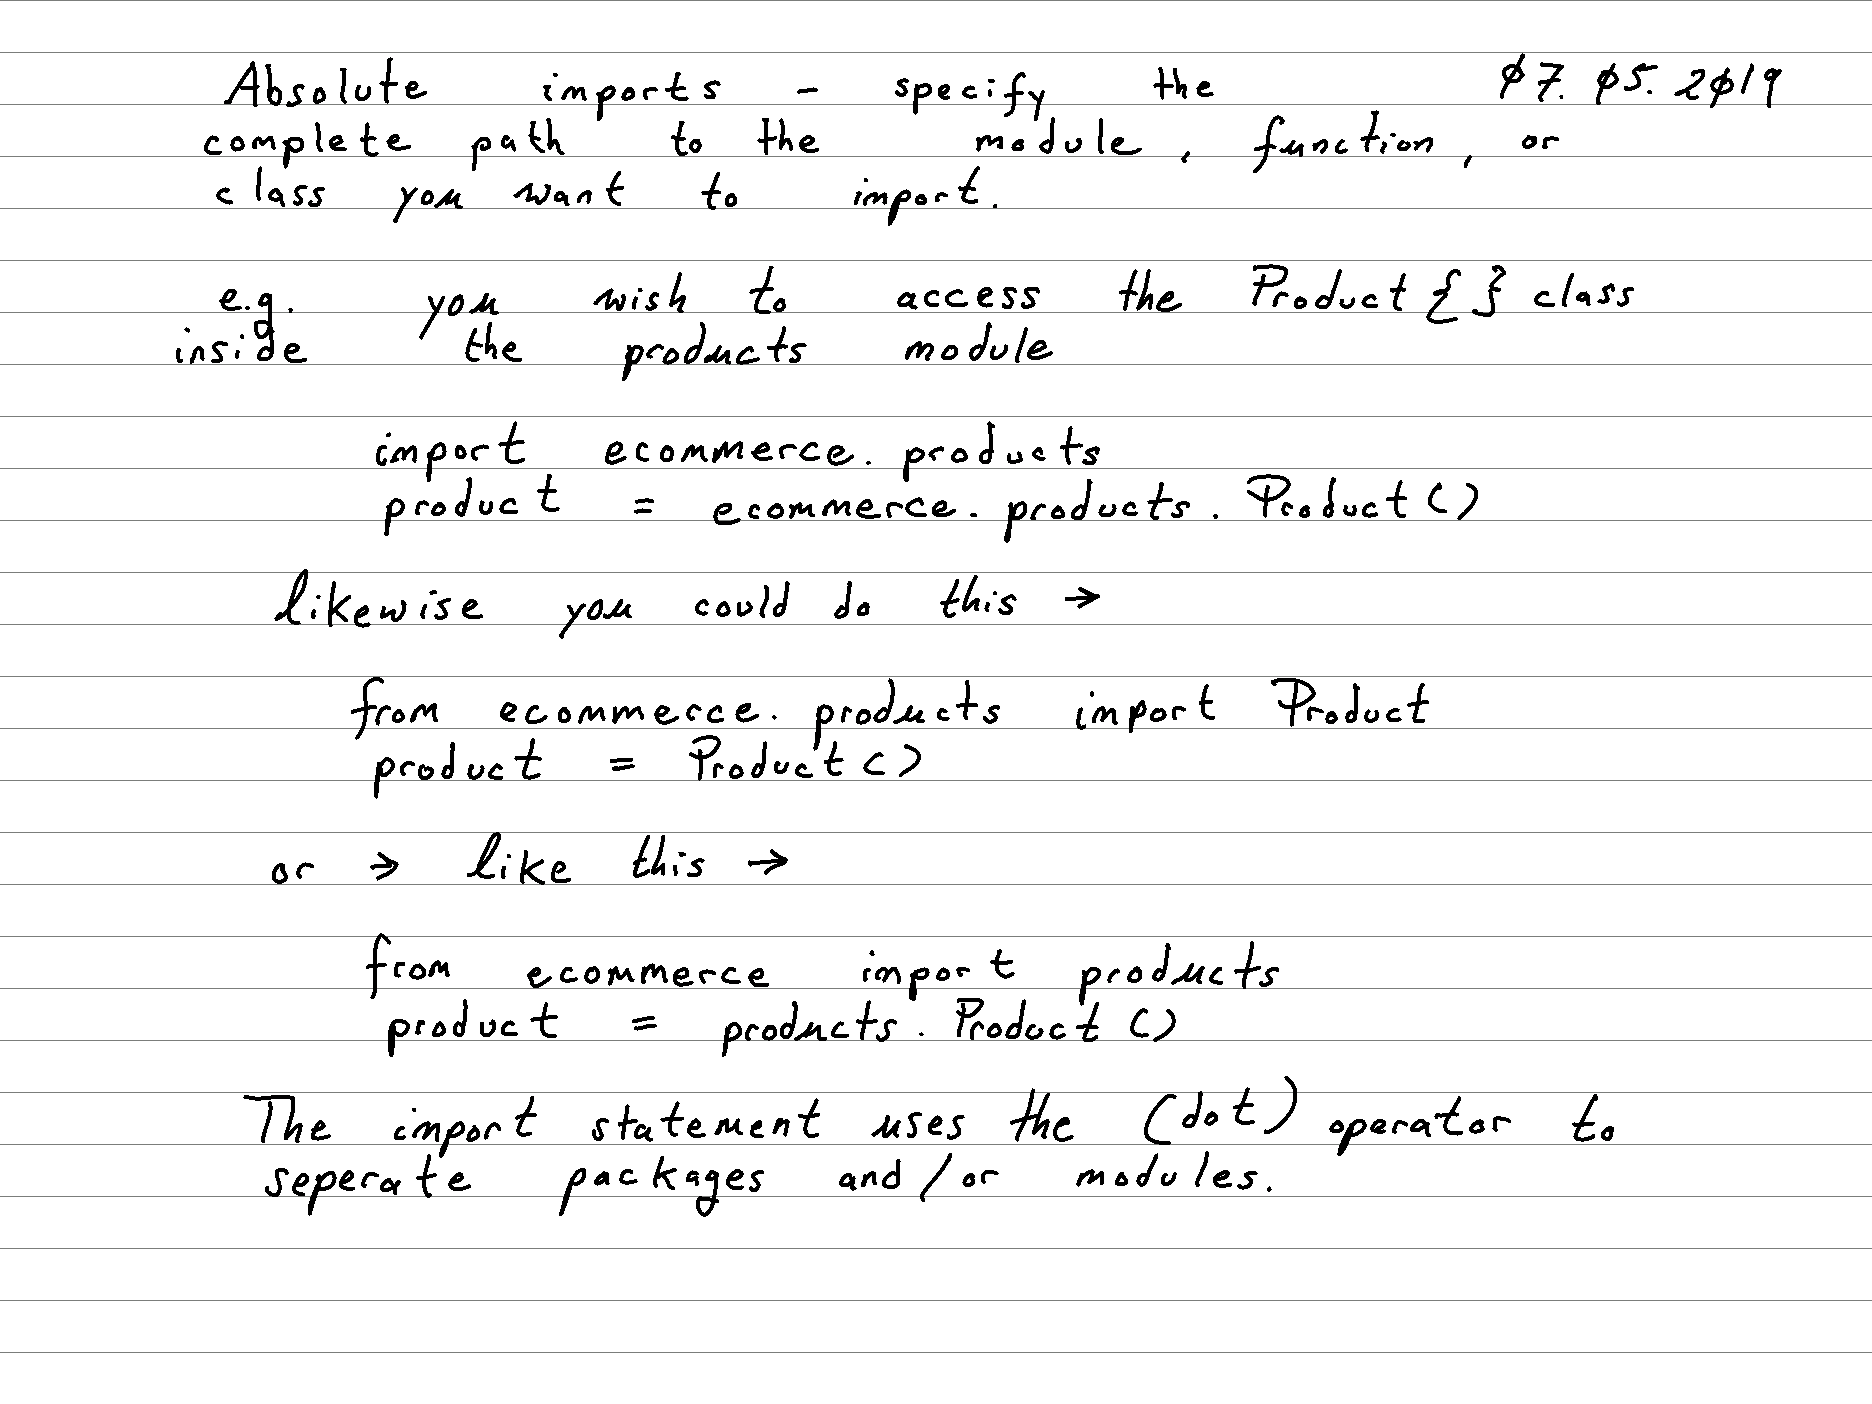 Absolute imports - specify the 07.05.2019
complete path to the module, function, or
class you want to import.
e.g. you wish to access the Product{ } class
inside the products module
import ecommerce.products
product = ecommerce.products.Product()
likewise you could do this →
from ecommerce.products import Product
product = Product()
or → like this →
from ecommerce import products
product = products.Product()
The import statement uses the (dot) operator to
seperate packages and/or modules.